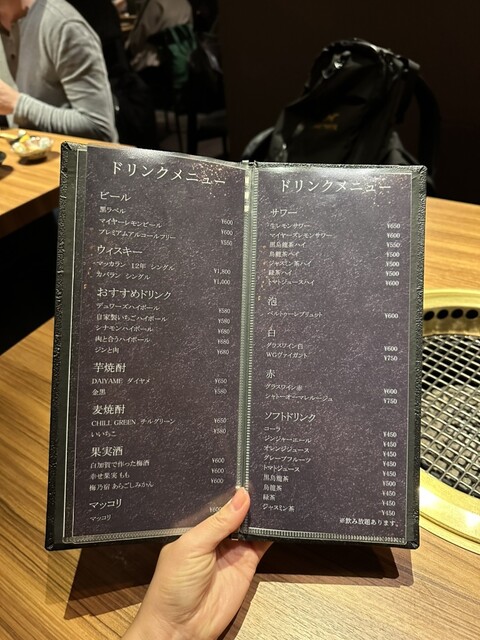 ドリンクメニュー
ビール
黒ラベル ¥600
マイヤーレモンビール ¥600
プレミアムアルコールフリー ¥550
ウィスキー
マッカラン 12年 シングル ¥1,800
カバラン シングル ¥1,600
おすすめドリンク
デュワーズハイボール ¥580
自家製いちごハイボール ¥680
シナモンハイボール ¥680
肉と合うハイボール ¥680
ジンと肉 ¥680
芋焼酎
DAIYAME ダイヤメ ¥650
金黒 ¥580
麦焼酎
CHILL GREEN チルグリーン ¥650
いいちこ ¥580
果実酒
白加賀で作った梅酒 ¥600
幸せ果実 もも ¥600
梅乃宿 あらごしみかん ¥600
マッコリ
マッコリ ¥600
ドリンクメニュー
サワー
生レモンサワー ¥650
マイヤーズレモンサワー ¥600
黒烏龍茶ハイ ¥550
烏龍茶ハイ ¥500
ジャスミン茶ハイ ¥500
緑茶ハイ ¥500
トマトジュースハイ ¥600
泡
ベルトゥーレブリュット ¥600
白
グラスワイン白 ¥600
WGヴァイガント ¥750
赤
グラスワイン赤 ¥600
シャトーオーマレルージュ ¥750
ソフトドリンク
コーラ ¥450
ジンジャーエール ¥450
オレンジジュース ¥450
グレープフルーツ ¥450
トマトジュース ¥450
黒烏龍茶 ¥500
烏龍茶 ¥450
緑茶 ¥450
ジャスミン茶 ¥450
※飲み放題あります。